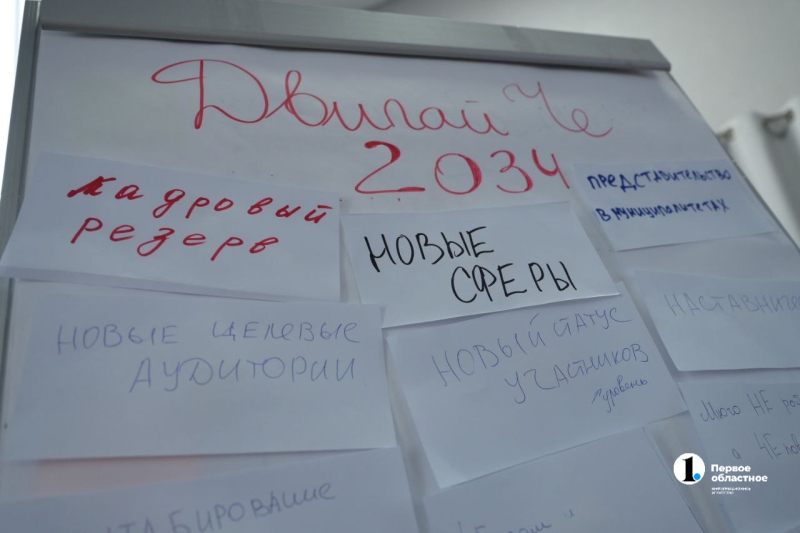 Двигай Че
2034
кадровый
резерв
НОВЫЕ
СФЕРЫ
ПРЕДСТАВИТЕЛЬСТВО
В МУНИЦИПАЛИТЕТАХ
НОВЫЕ ЦЕЛЕВЫЕ
АУДИТОРИИ
НОВЫЙ СТАТУС
УЧАСТНИКОВ
/уровень
НАСТАВНИЧЕ
Много НЕ
а ЧЕ
ТАБИРОВАНИЕ
1.
Первое
областное